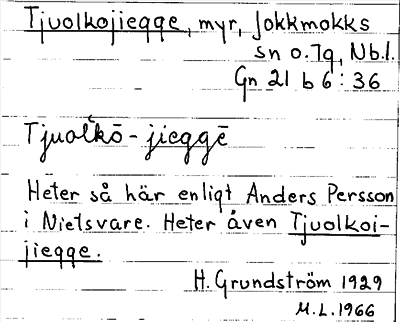 Tjuolkojiegge, myr, Jokkmokks
sn o. Tg, Nb.l.
Gn 21 b 6 : 36
Tjuolˈkō - jieggē
Heter så här enligt Anders Persson
i Nietsvare. Heter även Tjuolkoi-
jiegge.
H. Grundström 1929
M.L. 1966